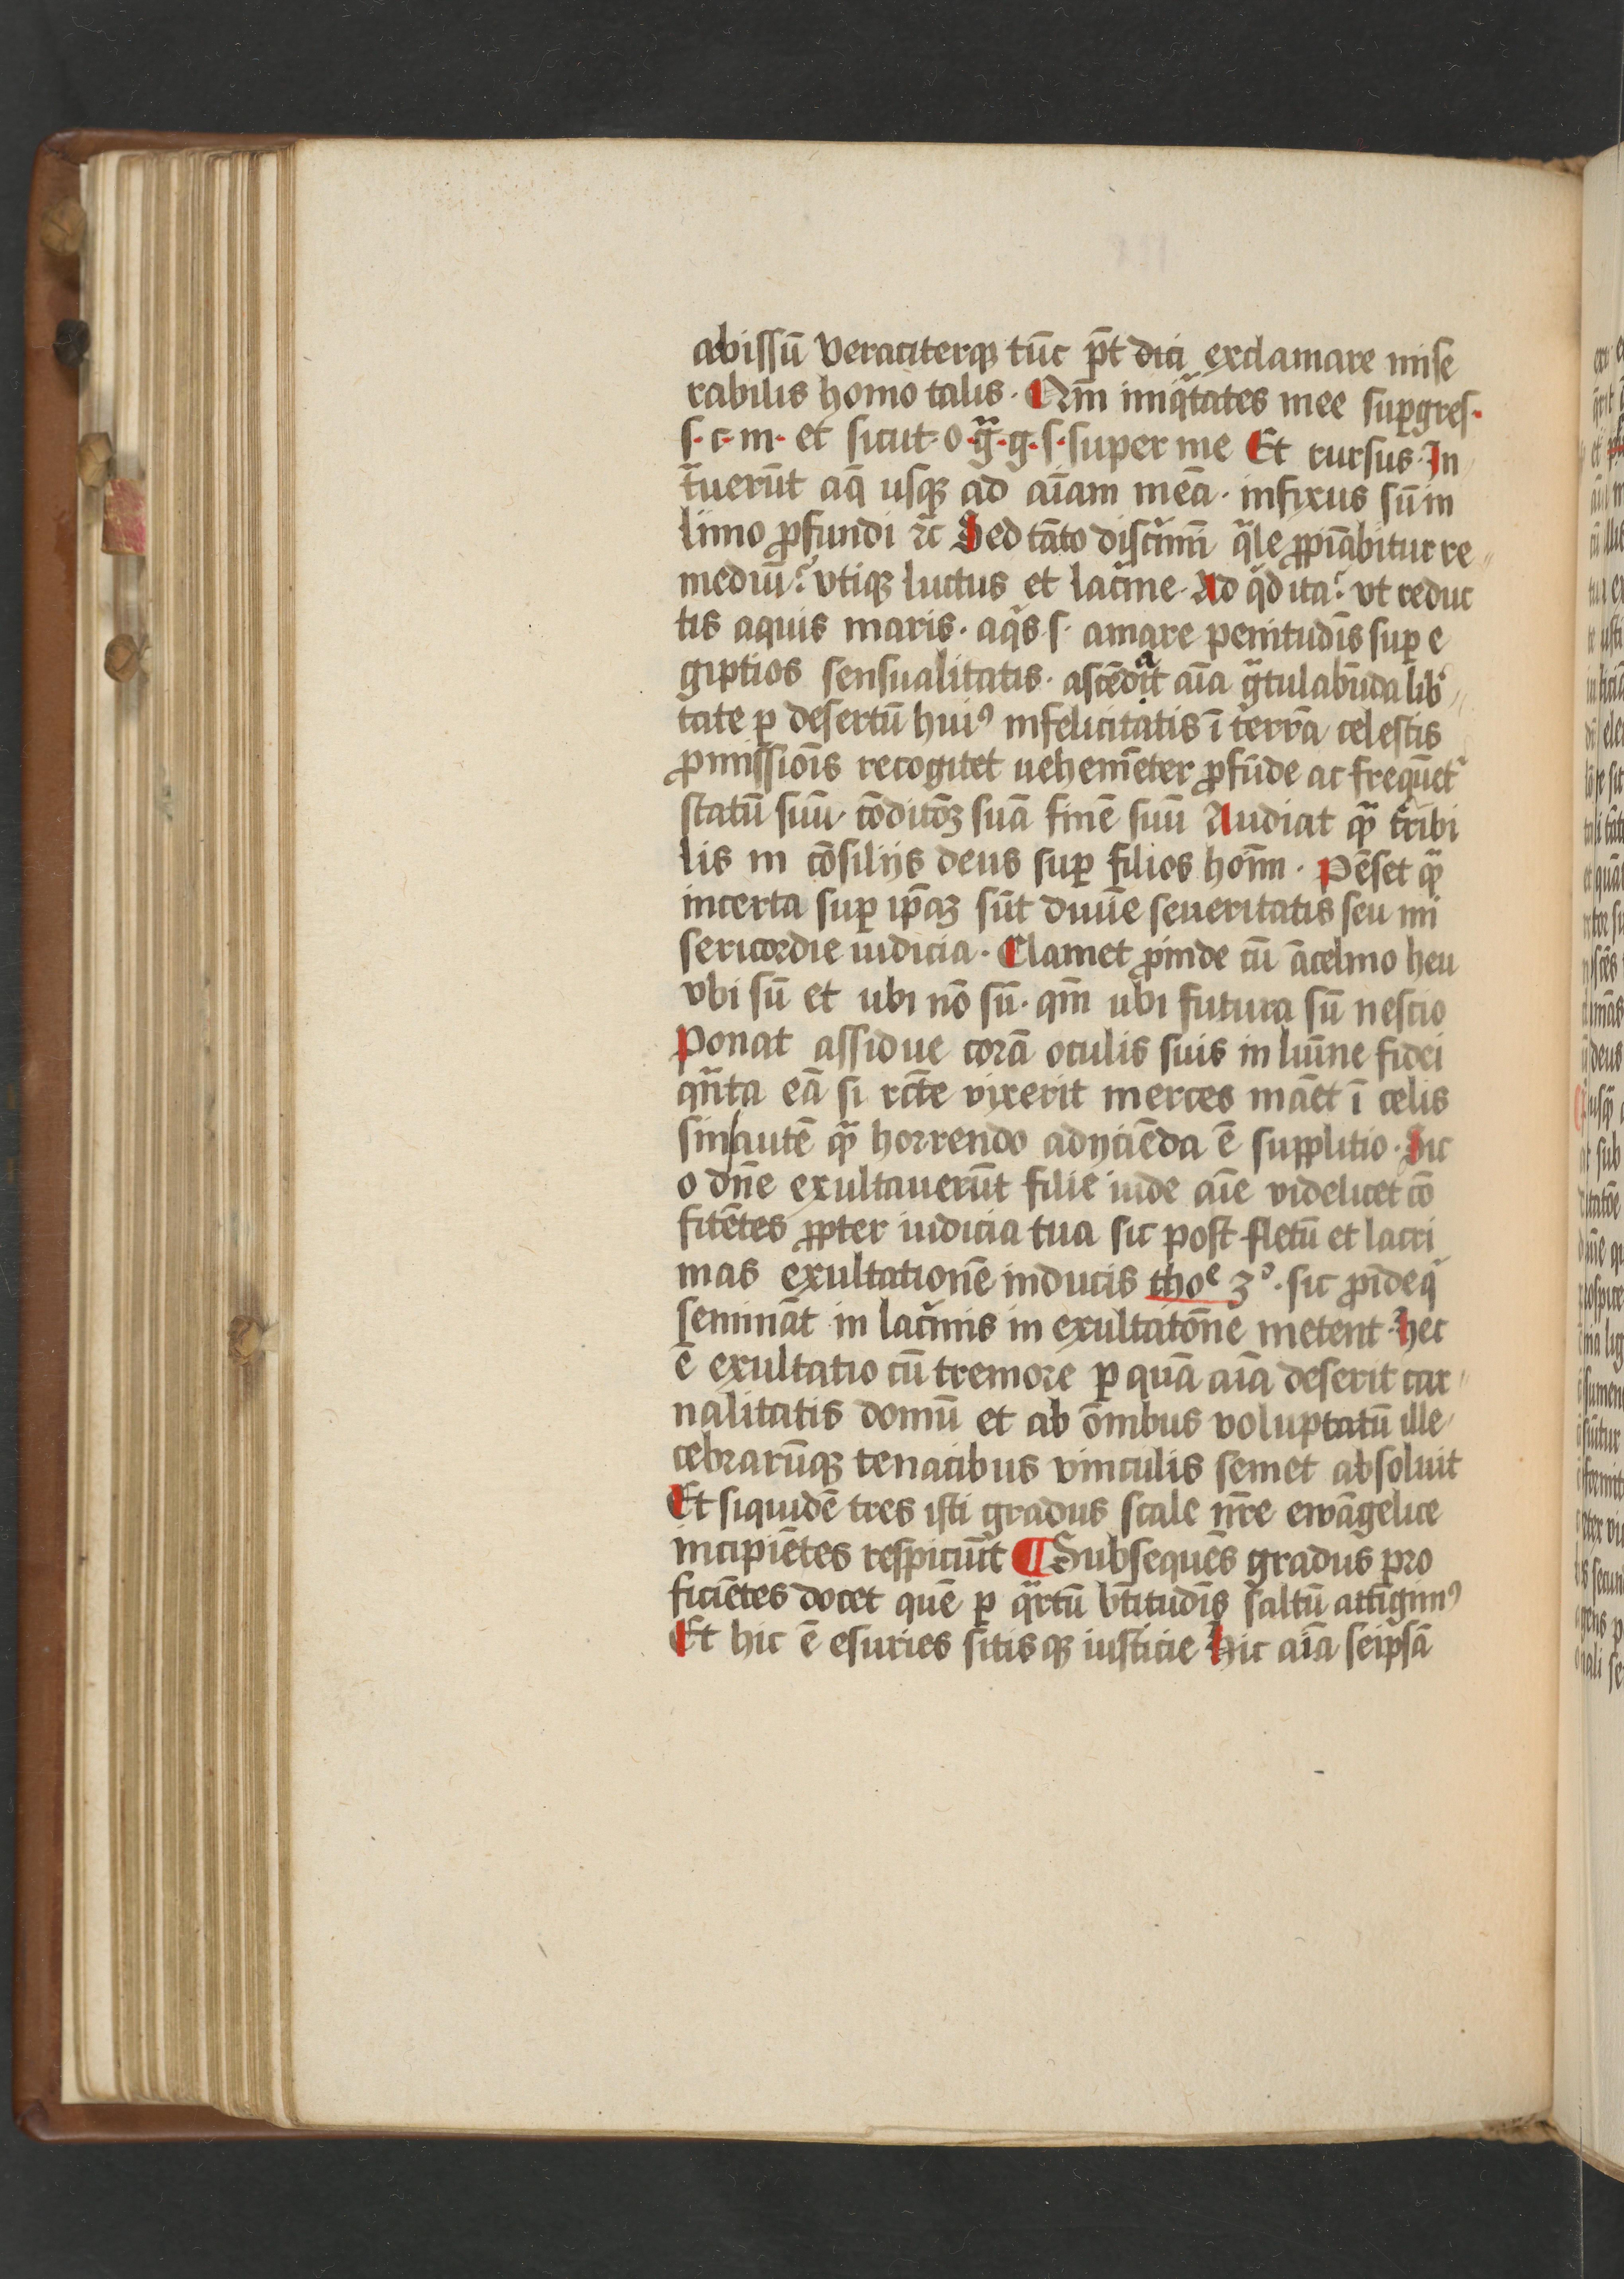 abissū veraciterqꝫ tūc pt̄ dici exclamare mise
rabilis homo talis. Qm̄ iniq̄tates mee suꝑgres.
s. c. m. et sicut. o. gͣ. g. s. super me Et rursus. In
tͣuerūt aq̄ usqꝫ ad aīam meā. infixus sū in
limo ꝓfundi ⁊c̄ Sed tāto discͥmī qͣle ꝓpīabitur re
mediū? vtiqꝫ luctus et lacͥme. Ad qͥd ita? vt reduc
tis aquis maris. aqͥs. s. amare penitudīs suꝑ e
giptios sensualitatis. ascēdat aīa gͣtulabūda lib͛
tate ꝑ desertū huiꝰ infelicitatis ī terrā celestis
ꝓmissiōis recogitet uehemēter ꝓfūde ac frequēt͛
statū suū. cōditōꝫ suā finē suū Audiat qͣꝫ t͛ribi
lis in cōsilijs deus suꝑ filios hoīm. Pēset qͣꝫ
incerta suꝑ ip̄aꝫ sūt diuīe seueritatis seu mi
sericordie iudicia. Clamet ꝓinde cū ācelmo heu
vbi sū et ubi nō sū. qm̄ ubi futura sū nescio
Ponat assidue corā oculis suis in luīne fidei
qͣnta eā si rc̄te vixerit merces māet ī celis
sin autē qͣꝫ horrendo adijciēda ē supplitio. Sic
o dn̄e exultauerūt filie iude aīe videlicet cō
fitētes ꝓpter iudicia tua sic post fletū et lacri
mas exultationē inducis thoᵉ 3°. sic ꝓīde qͥ
semināt in lacͥmis in exultatōne metent. Hec
ē exultatio cū tremore ꝑ quā aīa deserit car
nalitatis domū et ab ōmibus voluptatū ille
cebrarūqꝫ tenacibus vinculis semet absoluit
Et siquidē tres isti gradus scale nr̄e ewāgelice
incipiētes respiciūt ¶ Subsequēs gradus pro
ficiētes docet quē ꝑ qͣrtū bt̄itudīs saltū attigimꝰ
Et hic ē esuries sitisqꝫ iusticie Hic aīa seip̄sā